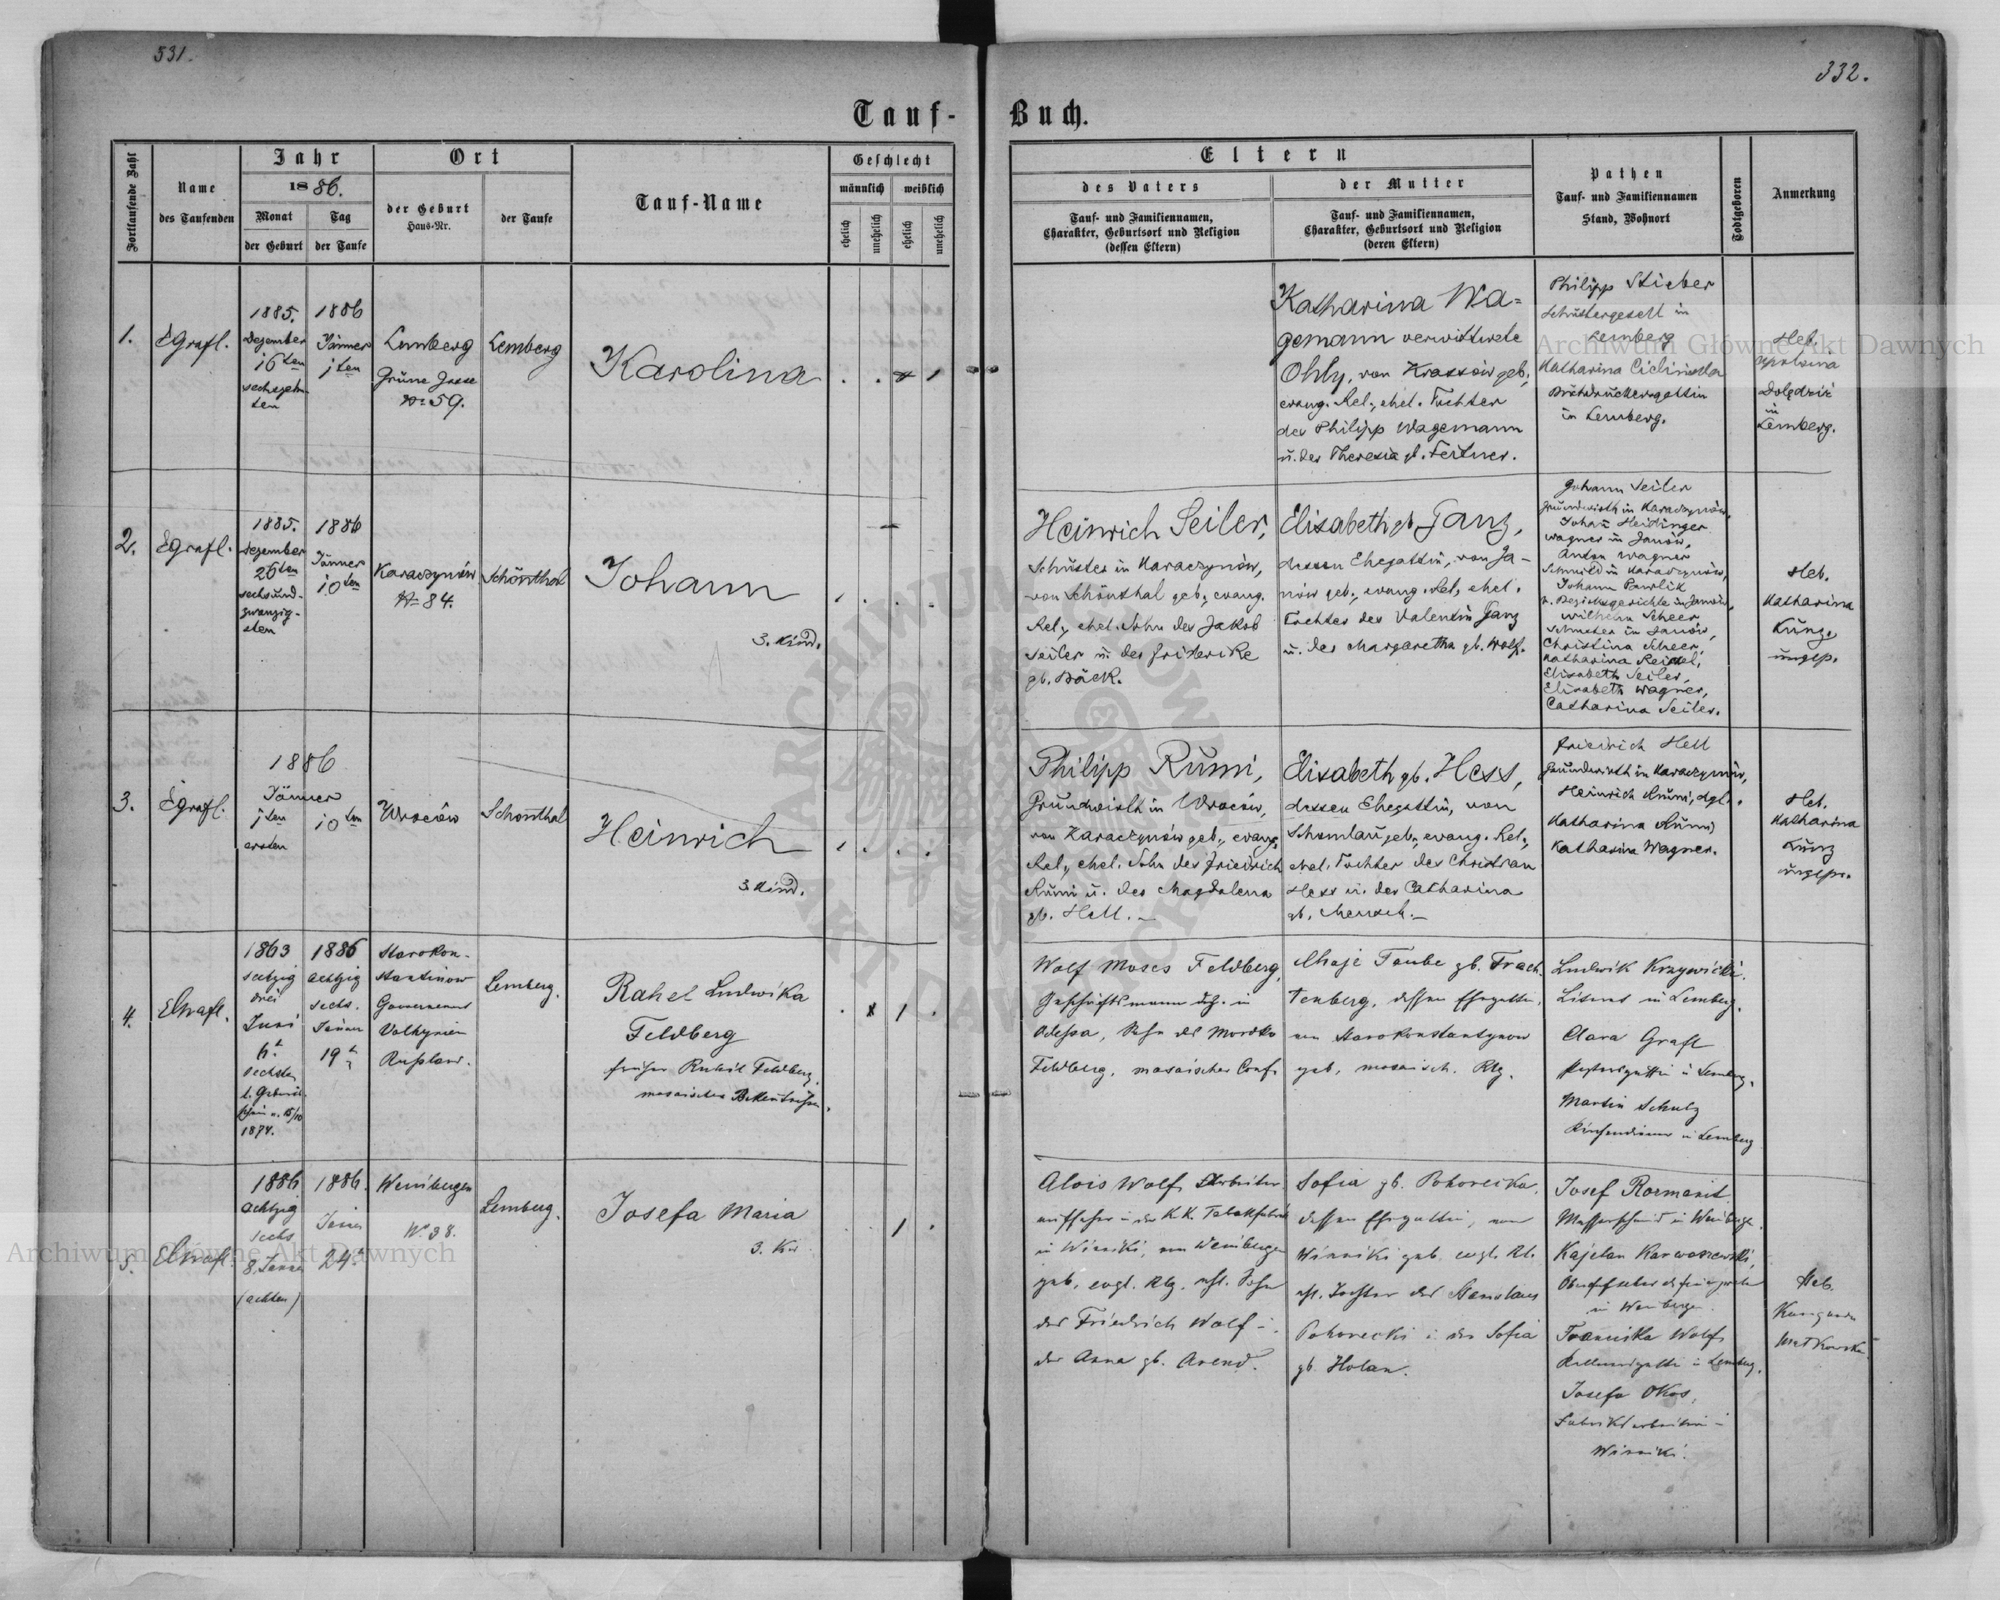 531.
332.
Tauf-
Buch.
Fortlaufende Zahl
Name
des Taufenden
Jahr
1886.
Monat
der Geburt
Tag
der Taufe
Ort
der Geburt
Haus-Nr.
der Taufe
Tauf-Name
Geschlecht
männlich
weiblich
ehelich
unehelich
ehelich
unehelich
Eltern
des Vaters
Tauf- und Familiennamen,
Charakter, Geburtsort und Religion
(dessen Eltern)
der Mutter
Tauf- und Familiennamen,
Charakter, Geburtsort und Religion
(deren Eltern)
Pathen
Tauf- und Familiennamen
Stand, Wohnort
Todtgeboren
Anmerkung
1.
EGrafl.
1885.
Dezember
16ten
sechszehn
ten
1886
Jänner
1ten
Lemberg
Grüne Gasse
No 59.
Lemberg
Karolina
Katharina Wa=
gemann verwittwete
Ohly, von Krassów geb.,
evang. Rel., ehel. Tochter
des Philipp Wagemann
u. der Theresia gb. Feitner.
Philipp Stieber
Schustergesell in
Lemberg
Katharina
in Lemberg.
Heb.
in
Lemberg.
2.
EGrafl.
1885.
Dezember
26ten
sechsund-
zwanzig-
sten
1886
Jänner
10ten
Karaczynów
No 84.
Schönthal
Johann
3. Kind.
Heinrich Seiler,
Schuster in Karaczynów,
von Schönthal geb., evang.
Rel., ehel. Sohn des Jakob
Seiler u. der Friderike
gb. Bäck.
Elisabeth gb. Ganz,
dessen Ehegattin, von Ja-
nów geb., evang. Rel., ehel.
Tochter des Valentin Ganz
u. der Margaretha gb. Wolf.
Johann Seiler
Grundwirth in Karaczynów,
Johann Heidinger
Wagner in Janów,
Anton Wagner
Schmied in Karaczynów,
Johann Pawlik
b. Bezirksgerichte in Janów,
Wilhelm Scheer
Schuster in Janów,
Christina Scheer,
Katharina
Elisabeth Seiler,
Elisabeth Wagner,
Catharina Seiler.
Heb.
Katharina
Kunz,
ungep.
3.
EGrafl.
1886
Jänner
1ten
ersten
10ten
Wroców
Schönthal
Heinrich
3. Kind.
Philipp Rumi,
Grundwirth in Wroców,
von Karaczynów geb., evang.
Rel., ehel. Sohn des Friedrich
Rumi u. der Magdalena
gb. Hell.
Elisabeth gb. Hess,
dessen Ehegattin, von
Schumlau geb., evang. Rel.,
ehel. Tochter des Christian
Hess u. der Catharina
gb. Mensch.
Friedrich Hell
Grundwirth in Karaczynów,
Heinrich Rumi, dgl.
Katharina Rumi
Katharina Wagner.
Heb.
Katharina
Kunz
ungep.
4.
EGrafl.
1863
sechzig
drei
Juni
6t
sechsten
1874.
1886
achtzig
sechs.
Jänner
19t
Starokon-
stantinow
Gouvernement
Volhynien
Rußland.
Lemberg.
Rahel Ludwika
Feldberg
früher Feldberg,
mosaischen
Wolf Moses Feldberg,
Geschäftsmann in
Odessa, Sohn des Mordko
Feldberg, mosaischer Conf.
Chaje Taube gb. Trach
tenberg, dessen Ehegattin,
von Starokonstantynow
geb., mosaisch. Rlg.
Ludwik Krzywicki.
in Lemberg.
Clara Grafl
Pfarrersgattin in Lemberg.
Martin Schulz
Kirchendiener in Lemberg
5.
EGrafl.
1886
achtzig
sechs
8. Jänner
(achten)
1886.
Jänner
24t
Weinbergen
No 38.
Lemberg.
Josefa Maria
3. Kd.
Alois Wolf,
aufseher in der K.K. Tabakfabrik
in Winniki, von Weinbergen
geb., evgl. Rlg. ehl. Sohn
des Friedrich Wolf u.
der Anna gb. Arend.
Sofia gb. Pohorecka,
dessen Ehegattin, von
Winniki geb. evgl. Rl.
ehl. Tochter des Stanislaus
Pohorecki u. der Sofia
gb. Holan.
Josef
in Weinbergen.
Kajetan
in Weinbergen.
Franciska Wolf,
in Lemberg.
Josefa Okos,
Fabriksarbeiterin in
Winniki.
Heb.
Archiwum Główne Akt Dawnych
Archiwum Główne Akt Dawnych
ARCHIWUM GŁÓWNE
AKT DAWNYCH